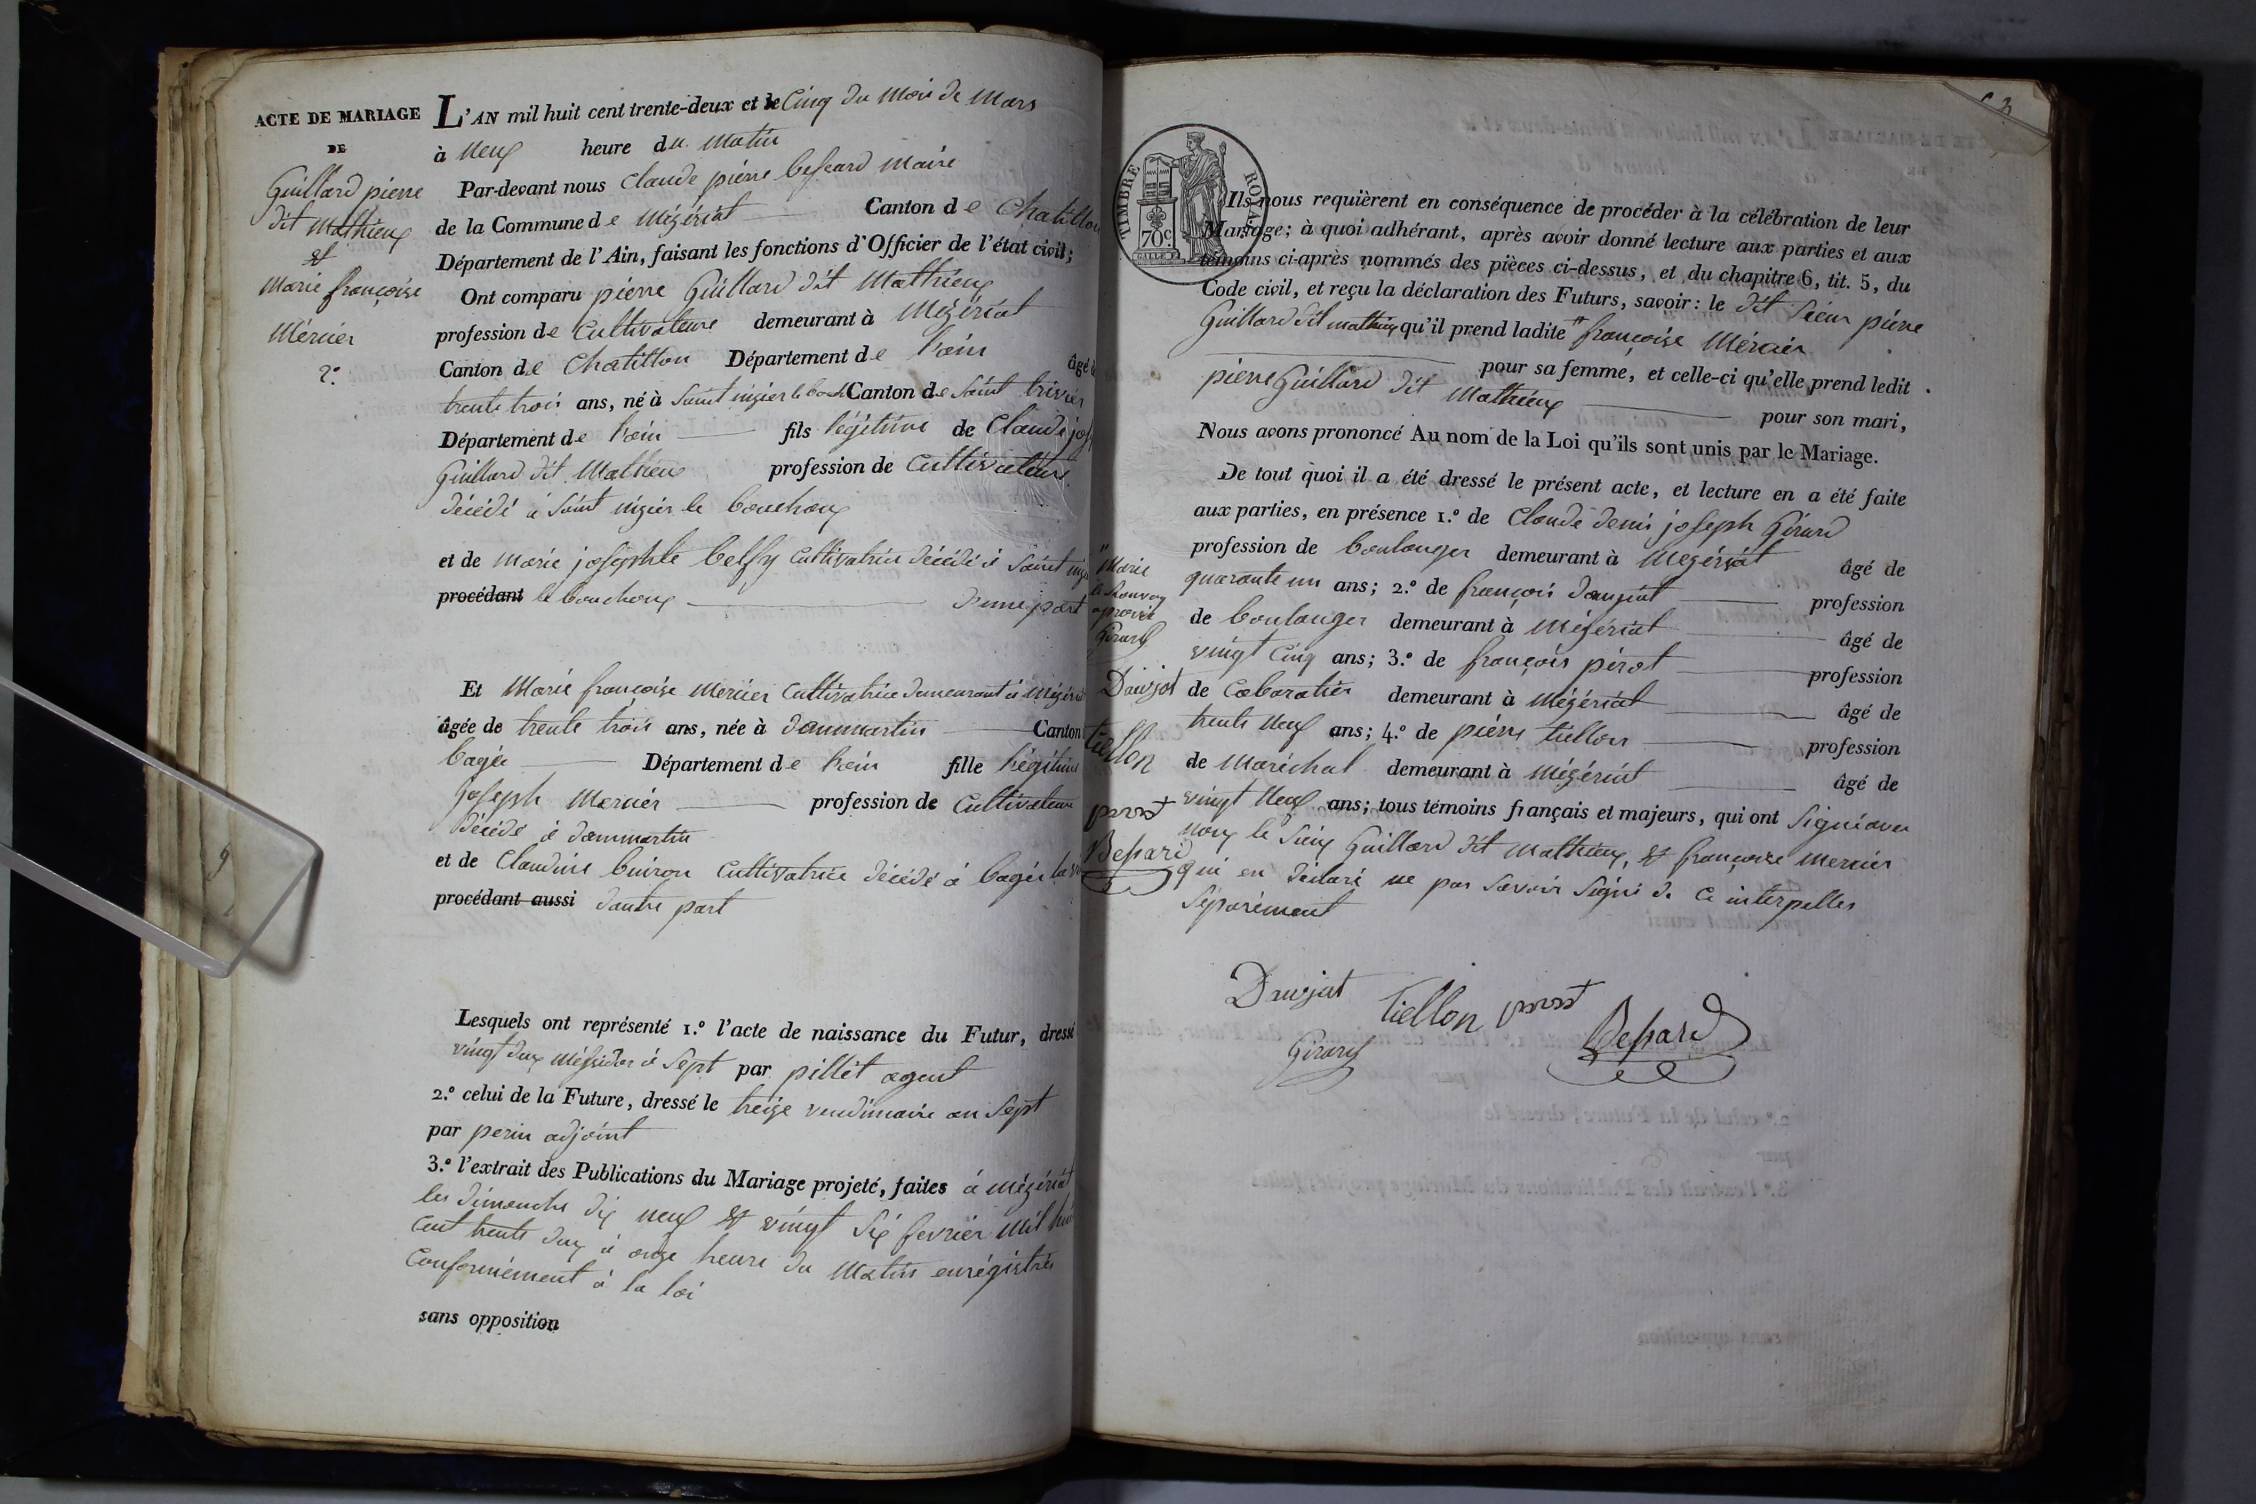 ACTE DE MARIAGE
DE
Guillard pierre
dit Mathieux
et
Marie françoise
Mercier
2.º
L'AN mil huit cent trente-deux et le Cinq du Mois de Mars
à Neuf heure du Matin
Par-devant nous Claude pierre Bessard Maire
de la Commune de Mézériat Canton de Chatillon
Département de l'Ain, faisant les fonctions d'Officier de l'état civil;
Ont comparu pierre Guillard dit Mathieux
profession de Cultivateur demeurant à Mézériat
Canton de Chatillon Département de l'ain âgé de
trente trois ans, né à Saint nizier le bouch Canton de Saint trivier
Département de l'ain fils légitime de Claude jos
Guillard dit Mathieu profession de Cultivateur
décédé à Saint nizier le bouchoux
et de Marie josephte belfy Cultivatrice décédé à Saint niz
procédant le bouchoux d'une part
Et Marie françoise Mercier Cultivatrice demeurant à Mézériat
âgée de trente trois ans, née à dommartin Canton
bagée Département de l'ain fille légitime
joseph Mercier profession de Cultivateur
décédé à dommartin
et de Claudine buiron Cultivatrice décédé à bagée la
procédant aussi d'autre part
Lesquels ont représenté 1.º l'acte de naissance du Futur, dressé
vingt dux Méssidor à Sept par pillet agent
2.º celui de la Future, dressé le treize vendimaire an Sept
par perin adjoint
3.º l'extrait des Publications du Mariage projeté, faites à Mézériat
les dimanche dix neuf et vingt Six fevrier Mil huit
cent trente dux à onze heure du Matin enrégistrés
Conformément à la loi
sans opposition
TIMBRE ROYAL
70c
Ils nous requièrent en conséquence de procéder à la célébration de leur
Mariage; à quoi adhérant, après avoir donné lecture aux parties et aux
témoins ci-après nommés des pièces ci-dessus, et du chapitre 6, tit. 5, du
Code civil, et reçu la déclaration des Futurs, savoir: le dit Sieur pierre
Guillard dit mathieux qu'il prend ladite " françoise Mercier
pour sa femme, et celle-ci qu'elle prend ledit
pierre Guillard dit Mathieux pour son mari,
Nous avons prononcé Au nom de la Loi qu'ils sont unis par le Mariage.
De tout quoi il a été dressé le présent acte, et lecture en a été faite
aux parties, en présence 1.º de Claude denis joseph Girard
profession de boulanger demeurant à Mézériat âgé de
quarante un ans; 2.º de françois daujat profession
de boulanger demeurant à Mézériat âgé de
vingt Cinq ans; 3.º de françois pérot profession
de Cabaratier demeurant à Mézériat âgé de
trente Neuf ans; 4.º de pierre tiellon profession
de Maréchal demeurant à Mézériat âgé de
vingt Neuf ans; tous témoins français et majeurs, qui ont Signé avec
Nous le Sieur Guillard dit Mathieux, et françoise Mercier
qui en déclaré ne pas Savoir Signé de Ce interpelles
Séparément
" Marie
Girard
Daujat
tiellon
Bessard
Daujat tiellon
Girard Bessard